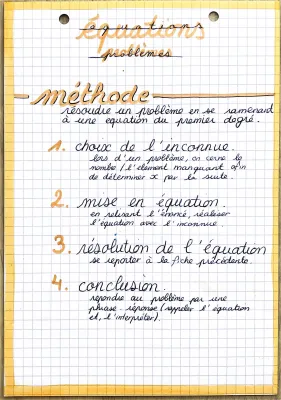 équations
problèmes
méthode
résoudre un problème en se ramenant
à une equation du premier degré.
1. choix de l'inconnue.
lors d'un problème, on cerne la
nombre / l'élement manquant afin
de déterminer x par la suite.
2. mise en équation.
en relisant l'énoncé, réaliser
l'équation avec l'inconnue
3. résolution de l'équation
se reporter à la fiche précédente.
4. conclusion.
repondre au problème par une
phrase-réponse (rappeler l'équation
et, l'interpréter).